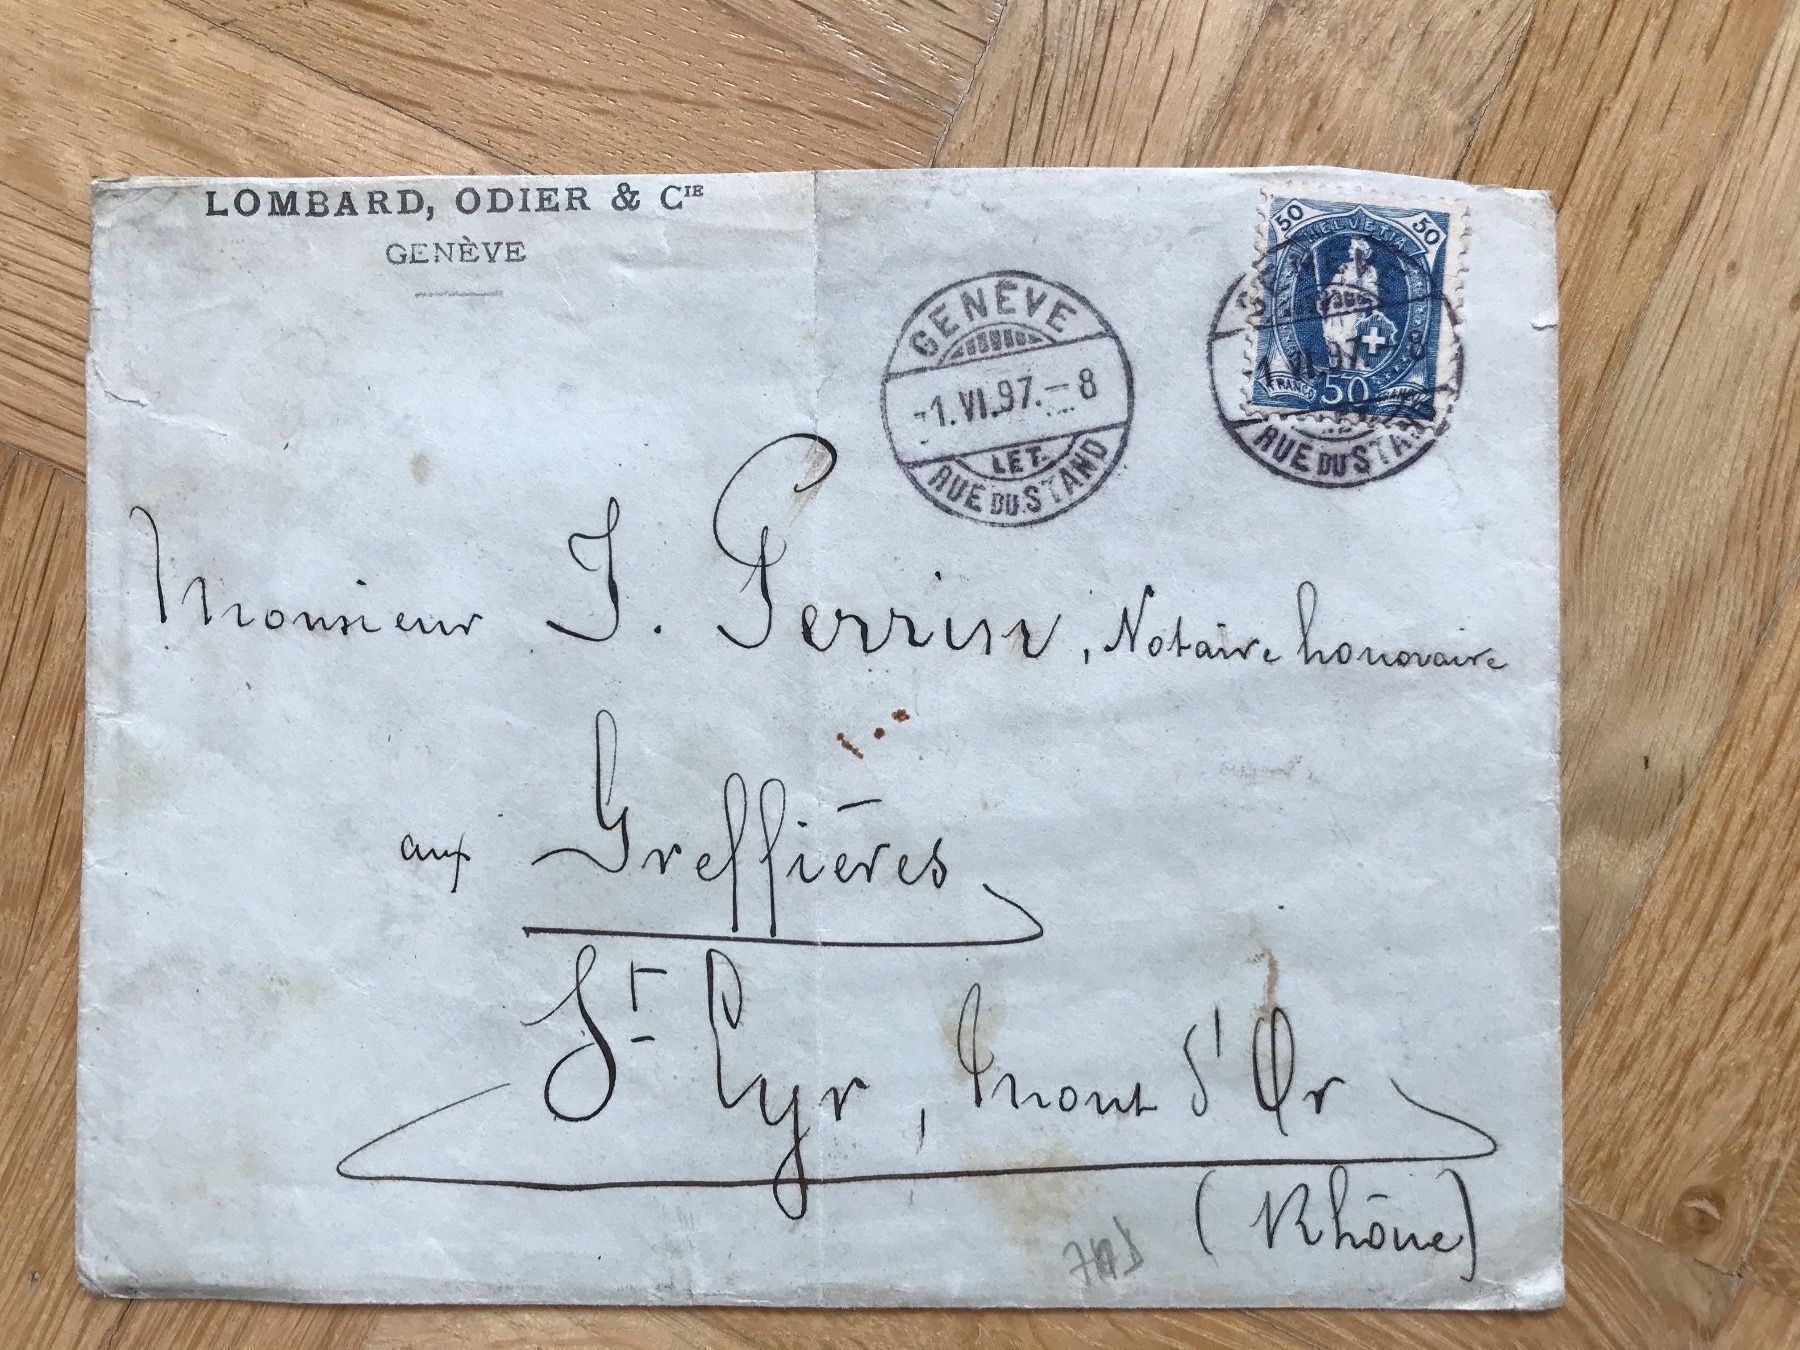 LOMBARD, ODIER & CIE
GENÈVE
GENÈVE
-1.VI.97.-8
LET.
RUE DU STAND
50 50
HELVETIA
FRANCO 50 FRANCO
-1.VI.97.-8
RUE DU STAND
Monsieur J. Perrin, Notaire honoraire
aux Greffières
St Cyr, Mont d'Or
(Rhône)